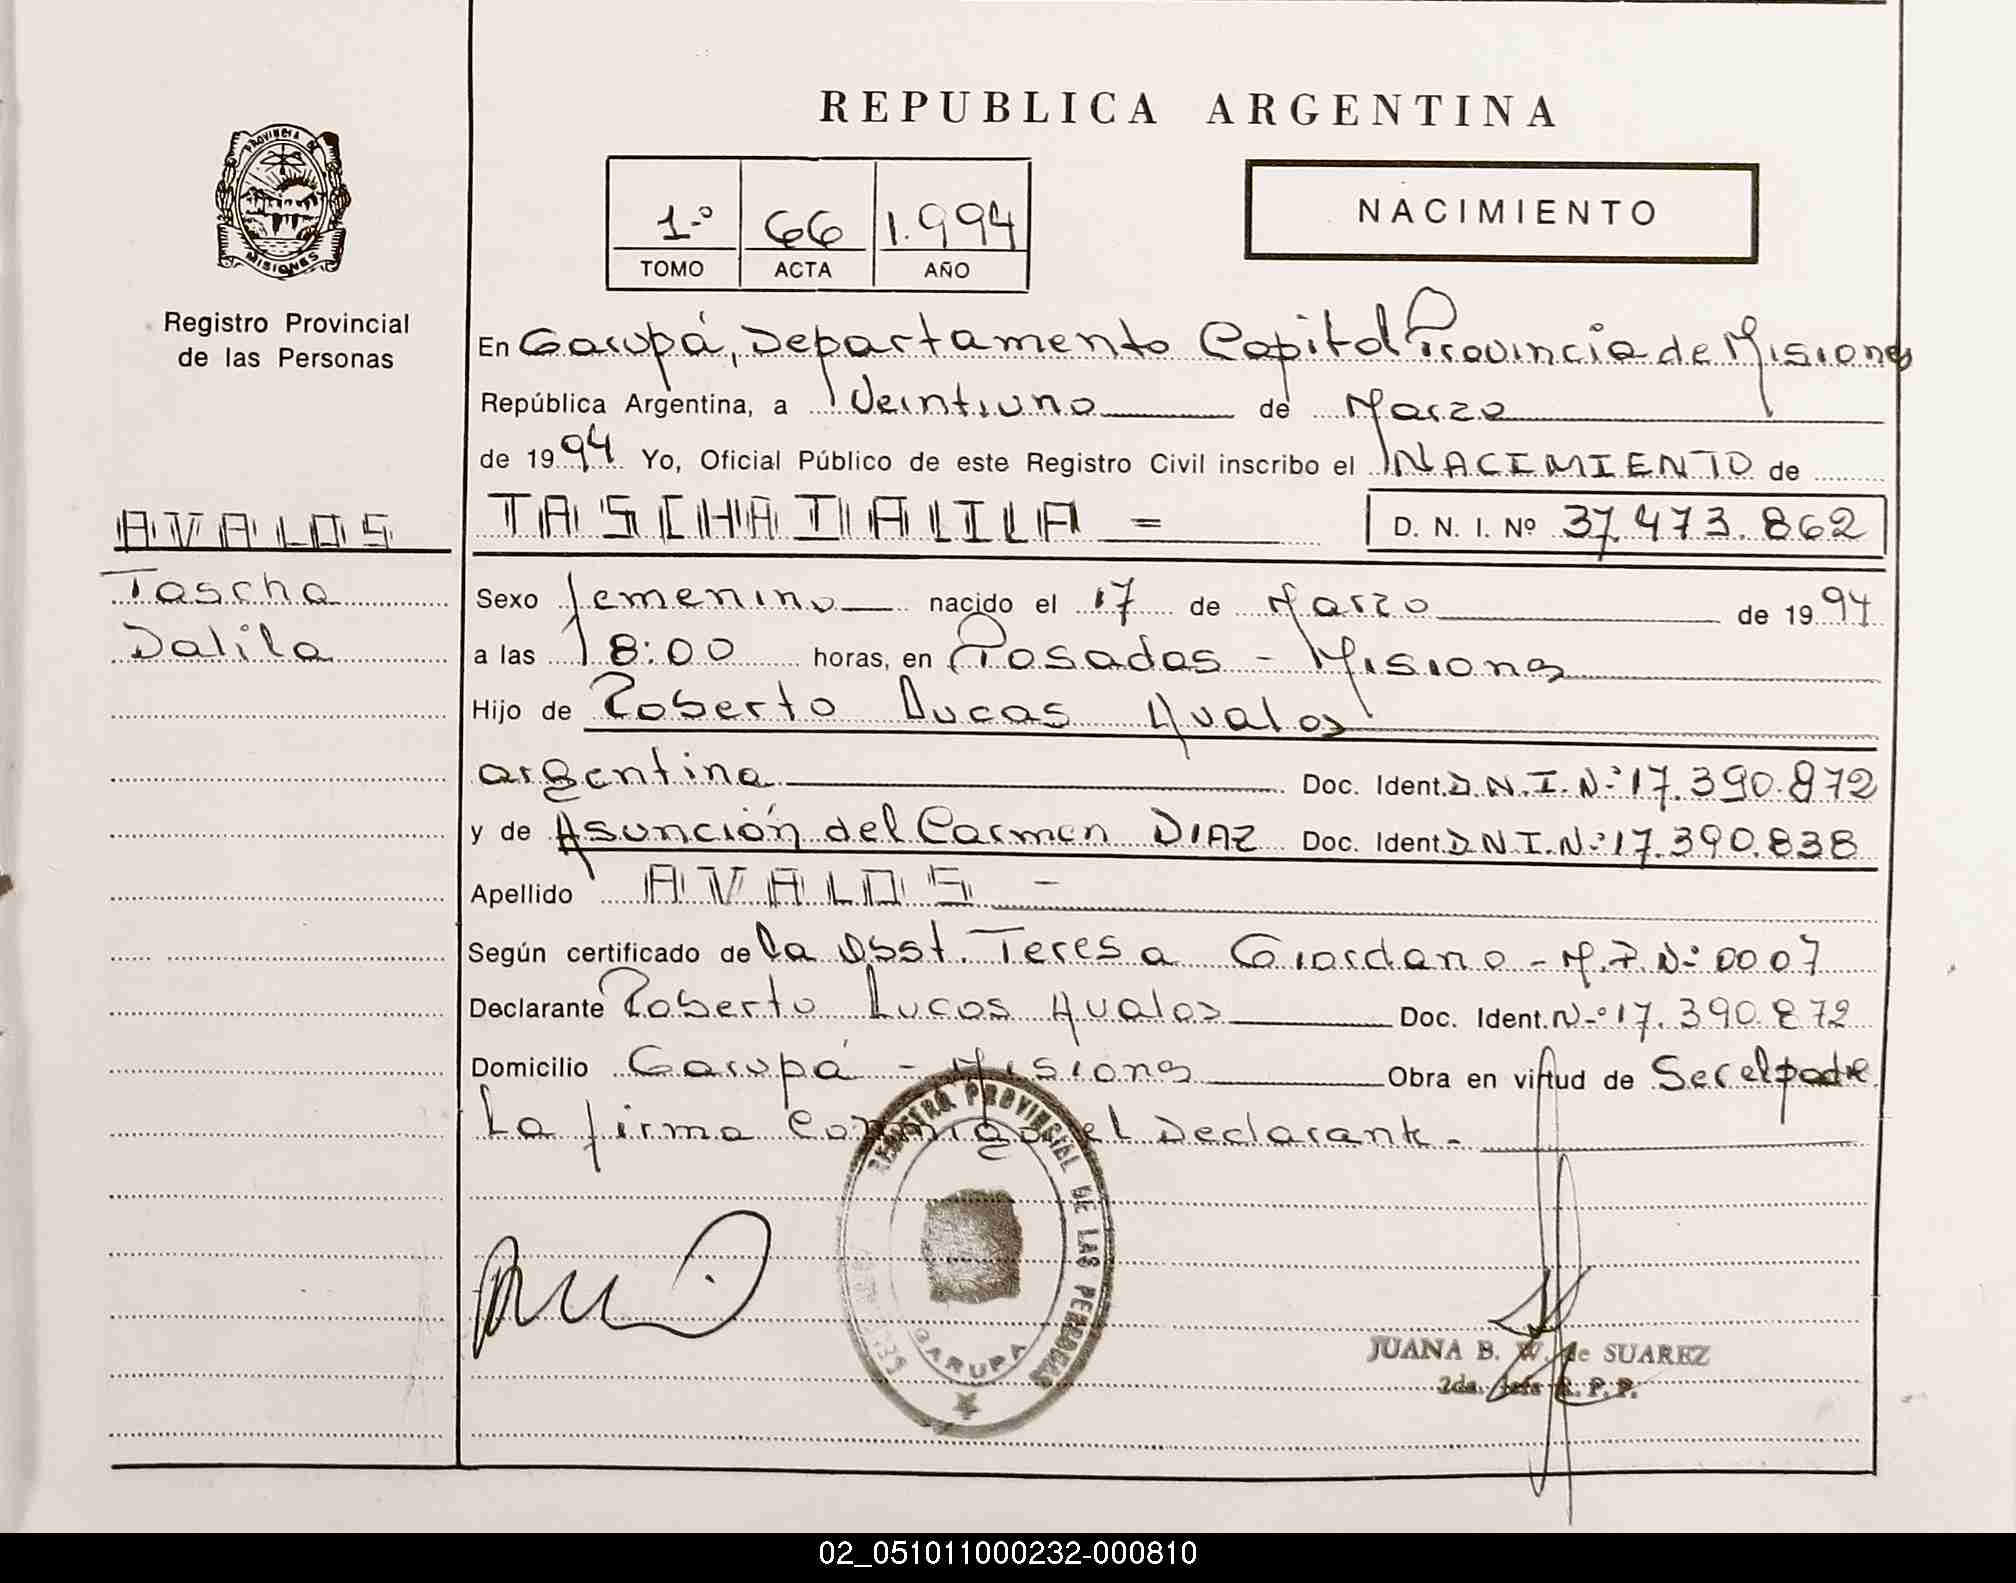 REPUBLICA ARGENTINA
PROVINCIA DE
MISIONES
Registro Provincial
de las Personas
1.º 66 1.994
TOMO ACTA AÑO
NACIMIENTO
En Garupá, Departamento Capital Provincia de Misiones
República Argentina, a Veintiuno de Marzo
de 1994 Yo, Oficial Público de este Registro Civil inscribo el NACIMIENTO de
AVALOS
Tascha
Dalila
TASCHA DALILA =
D. N. I. Nº 37.473.862
Sexo femenino nacido el 17 de Marzo de 1994
a las 18:00 horas, en Posadas - Misiones
Hijo de Roberto Lucas Avalos
argentina Doc. Ident. D.N.I.Nº 17.390.872
y de Asunción del Carmen DIAZ Doc. Ident. D.N.I.Nº 17.390.838
Apellido AVALOS -
Según certificado de la Obst. Teresa Giordano - M.P.Nº 0007
Declarante Roberto Lucas Avalos Doc. Ident. Nº 17.390.872
Domicilio Garupá - Misiones Obra en virtud de Ser el padre
La firma conmigo el Declarante.-
REGISTRO PROVINCIAL DE LAS PERSONAS
GARUPA
JUANA B. W. de SUAREZ
2da. Jefe R. P. P.
02_051011000232-000810